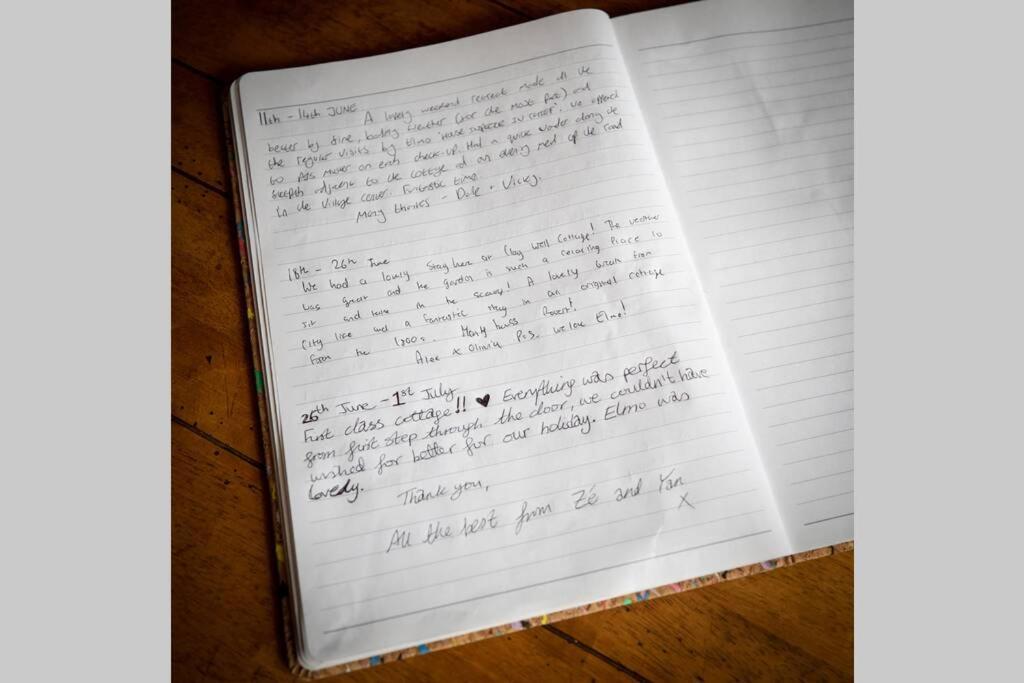 11th - 14th JUNE A lovely weekend retreat made all the
better by fine, boiling weather (for the most part) and
the regular visits by Elmo 'House Inspector in Career'. We offered
to pass muster on each check-up. Had a quick wander along the
adjacent to the cottage and an evening meal up the road
in the village centre. Fantastic time.
Many thanks - Dale + Vicky.
18th - 26th June
We had a lovely stay here at Clay Well Cottage! The weather
was great and the garden is such a relaxing place to
sit and take in the scenery! A lovely break from
city life and a fantastic stay in an original cottage
from the 1700s. Many thanks
Alex x Olivia P.S. we love Elmo!
26th June - 1st July
First class cottage!! ♥ Everything was perfect
from first step through the door, we couldn't have
wished for better for our holiday. Elmo was
lovely.
Thank you,
All the best from Zé and Yan
X